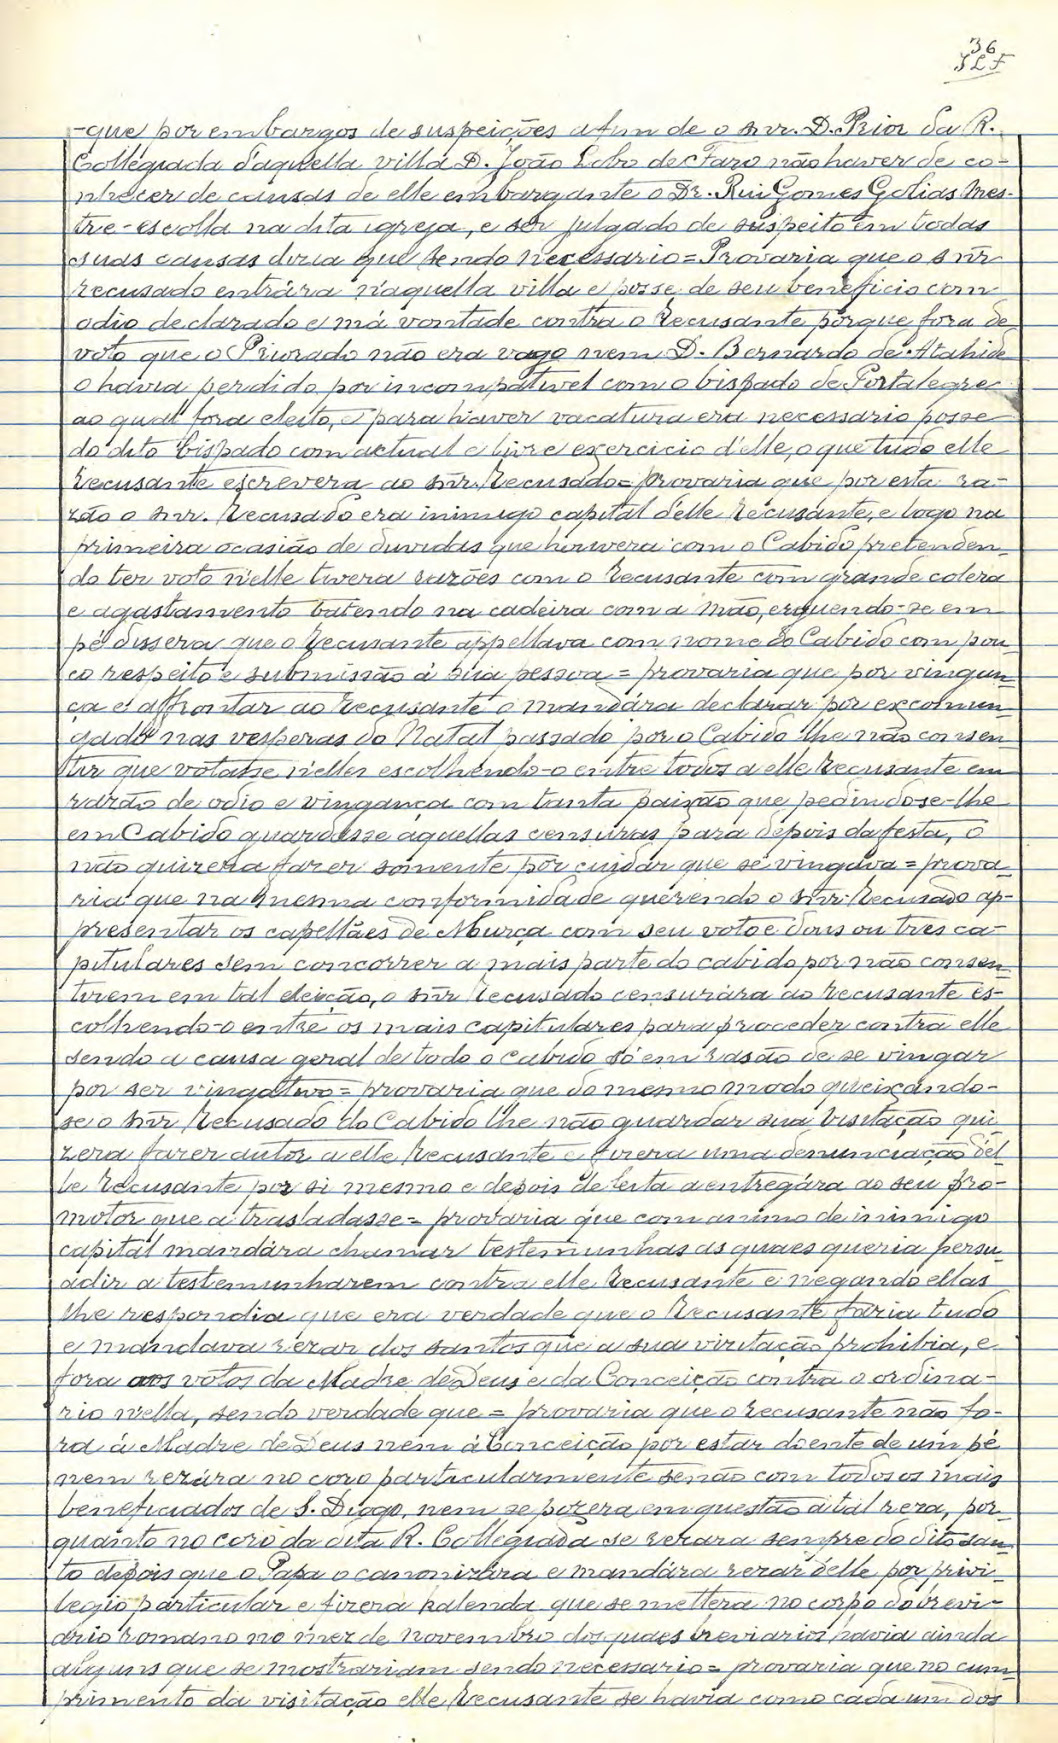 36
JLF
-que por embargos de suspeições afim de o snr. D. Prior da R.
Collegiada d'aquella villa D. João Lobo de Faro não haver de co-
nhecer de causas de elle embargante o Dr. Rui Gomes Golias Mes-
tre-escolla na dita igreja, e ser julgado de suspeito em todas
suas causas diria que sendo necessario = Provaria que o snr
recusado entrára n'aquella villa e posse de seu beneficio com
odio declarado e má vontade contra o Recusante porque fora de
voto que o Priorado não era vago nem D. Bernardo de Atahide
o havia perdido por incompativel com o bispado de Portalegre
ao qual fora eleito, e para haver vacatura era necessario posse
do dito bispado com actual e livre exercicio d'elle, o que tudo elle
Recusante escrevera ao snr. Recusado = provaria que por esta ra-
zão o snr. Recusado era inimigo capital d'elle Recusante, e logo na
primeira ocasião de duvidas que houvera com o Cabido pretenden-
do ter voto n'elle tivera razões com o Recusante com grande colera
e agastamento batendo na cadeira com a mão, erguendo-se em
pé dissera que o Recusante appellava com nome do Cabido com pou-
co respeito e submissão á sua pessoa = provaria que por vingan-
ça e affrontar ao Recusante o mandára declarar por excomun-
gado nas vesperas do Natal passado por o Cabido lhe não consen-
tir que votasse n'elle escolhendo-o entre todos a elle Recusante em
razão de odio e vingança com tanta paixão que pedindo-se-lhe
em Cabido guardasse aquellas censuras para depois da festa, o
não quizera fazer sómente por cuidar que se vingava = prova-
ria que na mesma conformidade querendo o snr. Recusado ap-
presentar os capellães de Murça com seu voto e dous ou tres ca-
pitulares sem concorrer a mais parte do cabido por não consen-
tirem em tal eleição, o snr Recusado censurára ao Recusante es-
colhendo-o entre os mais capitulares para proceder contra elle
sendo a causa geral de todo o cabido só em rasão de se vingar
por ser vingativo = provaria que do mesmo modo queixando-
se o snr Recusado do Cabido lhe não guardar sua visitação qui
zera fazer autor a elle Recusante e fizera uma denunciação d'él-
le Recusante por si mesmo e depois de feita a entregára ao seu pro-
motor que a trasladasse = provaria que com animo de inimigo
capital mandára chamar testemunhas as quaes queria persu-
adir a testemunharem contra elle Recusante e negando ellas
lhe respondia que era verdade que o Recusante fazia tudo
e mandava rezar dos santos que a sua visitação prohibia, e
fora aos votos da Madre de Deus e da Conceição contra o ordina-
rio n'ella, sendo verdade que = provaria que o recusante não fo-
ra á Madre de Deus nem á Conceição por estar doente de um pé
nem rezára no coro particularmente senão com todos os mais
beneficiados de S. Diogo, nem se pozera em questão a tal reza, por-
quanto no coro da dita R. Collegiada se rezara sempre do dito san-
to depois que o Papa o canonizára e mandára rezar d'elle por privi-
legio particular e fizera kalenda que se mettera no corpo do brevi-
ario romano no mez de novembro dos quaes breviarios havia ainda
alguns que se mostrariam sendo necessario = provaria que no cum-
primento da visitação elle Recusante se havia como cada um dos